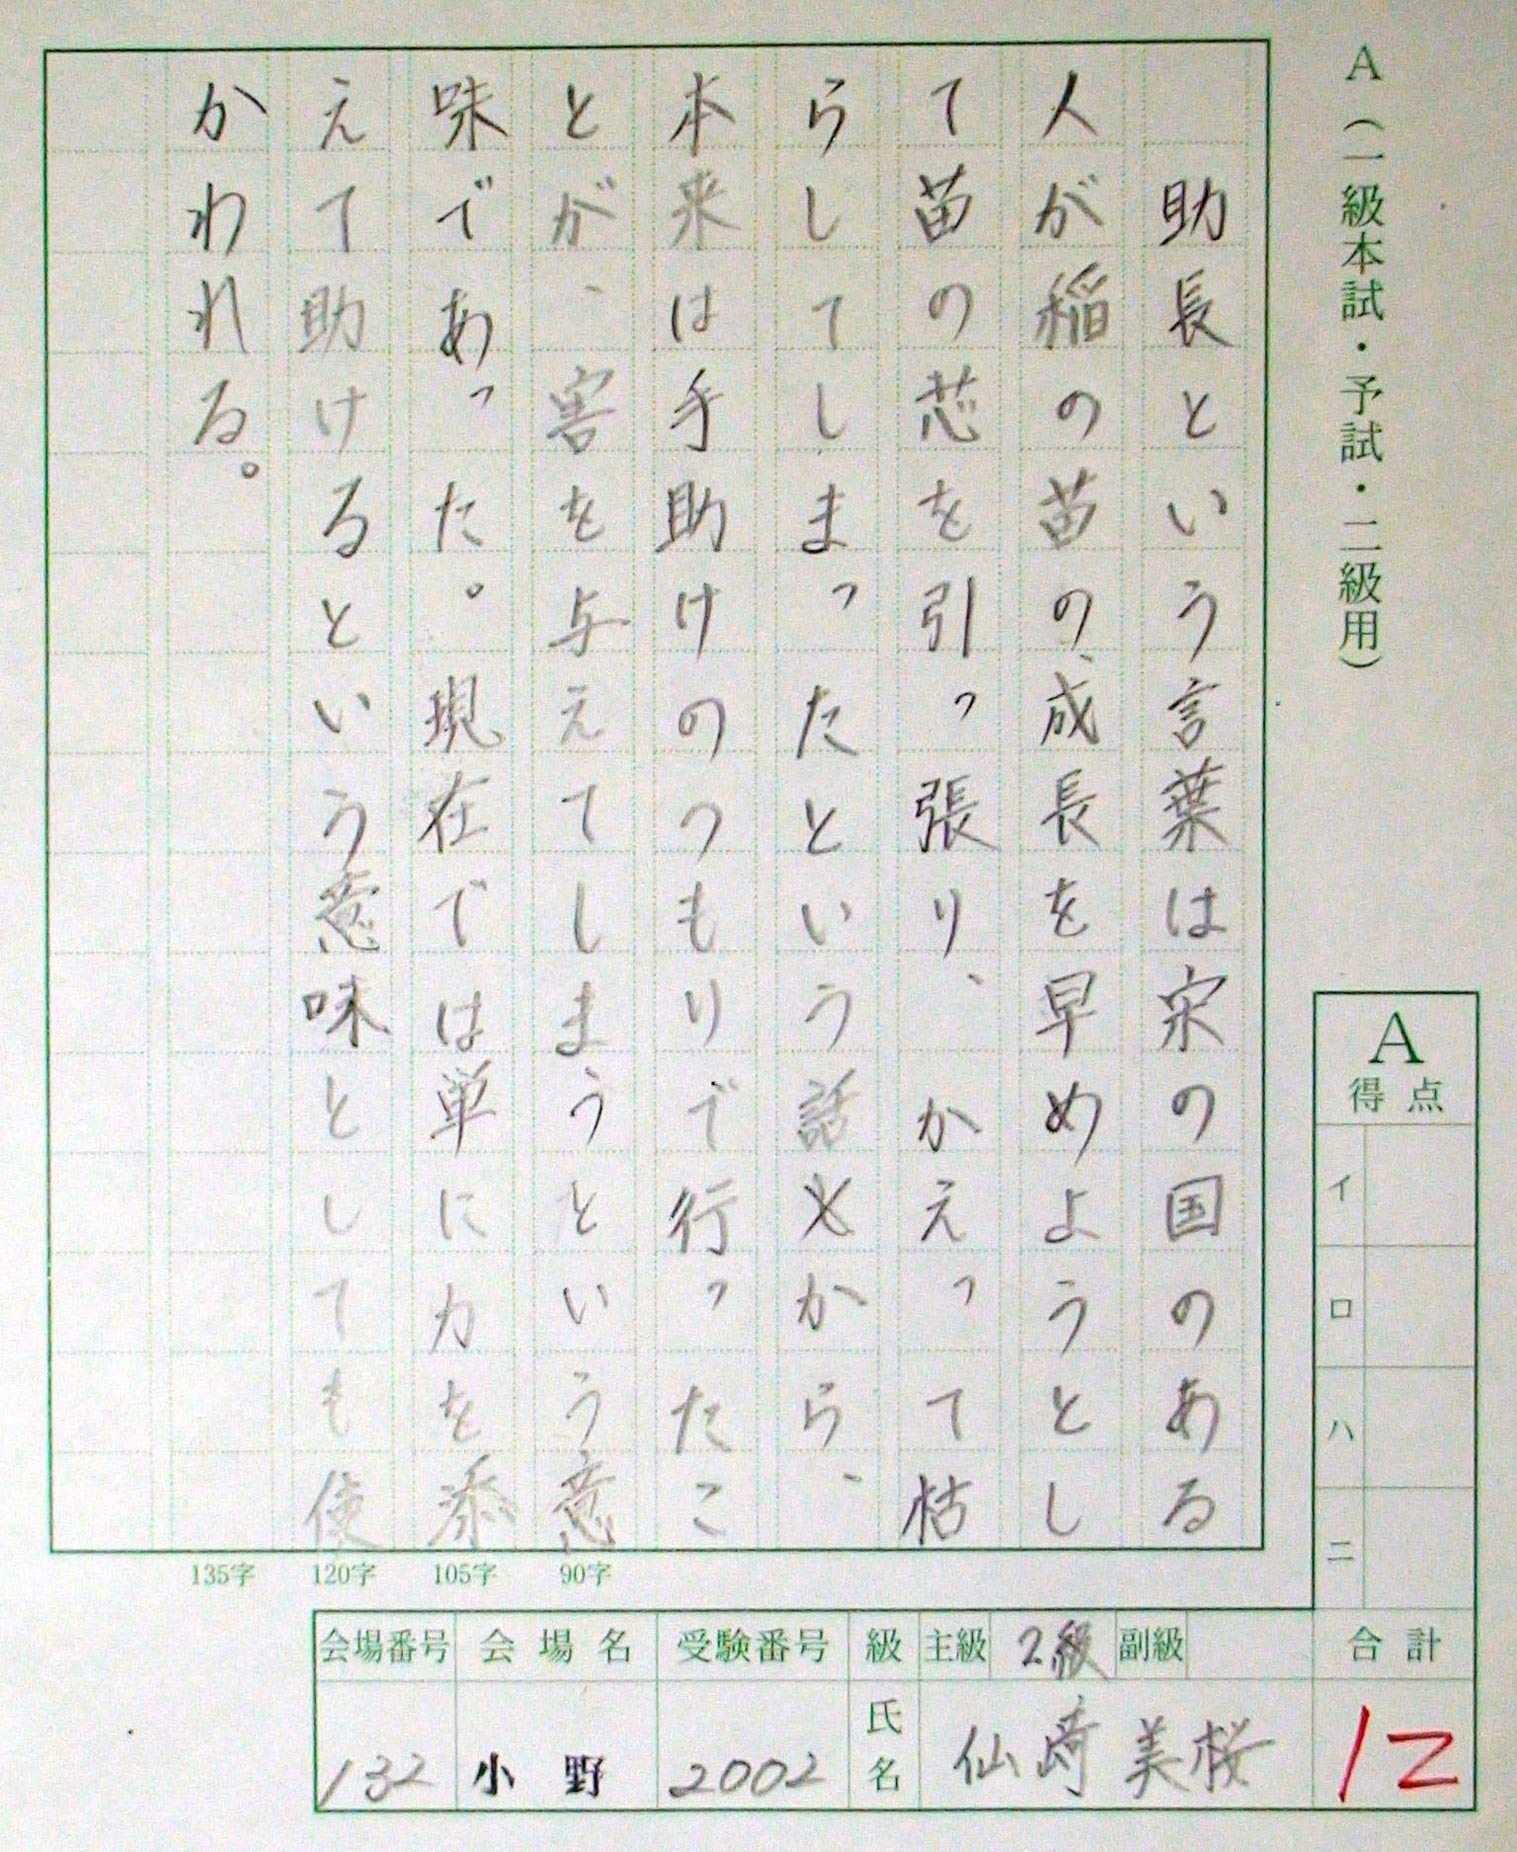 A（一級本試・予試・二級用）
助長という言葉は宋の国のある
人が稲の苗の、成長を早めようとし
て苗の芯を引っ張り、かえって枯
らしてしまったという話とから、
本来は手助けのつもりで行ったこ
とが、害を与えてしまうという意
味であった。現在では単に力を添
えて助けるという意味としても使
かわれる。
90字
105字
120字
135字
A
得点
イ
ロ
ハ
ニ
合計
12
会場番号 会場名 受験番号 級 主級 2級 副級
132 小野 2002 氏名 仙崎美桜